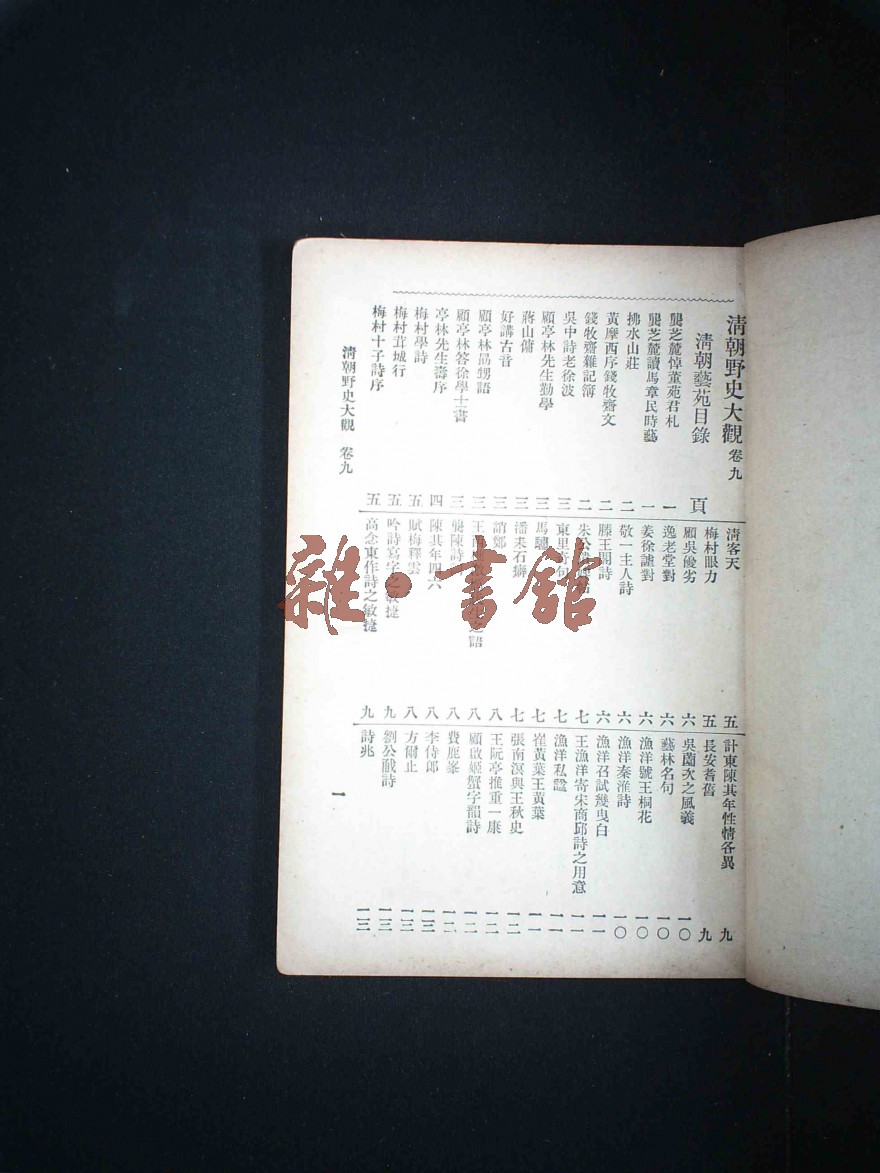 清朝野史大觀 卷九
清朝藝苑目錄 頁
龔芝麓悼董苑君札 一
龔芝麓讀馬章民時藝 一
拂水山莊 二
黃摩西序錢牧齋文 二
錢牧齋雜記簿 二
吳中詩老徐波 三
顧亭林先生勤學 三
蔣山傭 三
好講古音 三
顧亭林勗甥語 三
顧亭林答徐學士書 三
亭林先生壽序 四
梅村學詩 五
梅村茸城行 五
梅村十子詩序 五
清客天 五
梅村眼力 五
顧吳優劣 六
逸老堂對 六
姜徐謔對 六
敬一主人詩 六
滕王閣詩 六
朱公 七
東里 七
馬驌 七
潘耒石癖 七
謂鄭 八
王 語 八
龔陳詩 八
陳其年四六 八
賦梅釋雲 八
吟詩寫字之敏捷 九
高念東作詩之敏捷 九
計東陳其年性情各異 九
長安耆舊 九
吳薗次之風義 一〇
藝林名句 一〇
漁洋號王桐花 一〇
漁洋秦淮詩 一〇
漁洋召試幾曳白 一一
王漁洋寄宋商邱詩之用意 一一
漁洋私諡 一一
崔黃葉王黃葉 一一
張南溟與王秋史 一二
王阮亭推重一康 一二
顧啟姬蟹字韻詩 一二
費鹿峯 一二
李侍郎 一三
方爾止 一三
劉公㦷詩 一三
詩兆 一三
清朝野史大觀 卷九
一
雜·書館